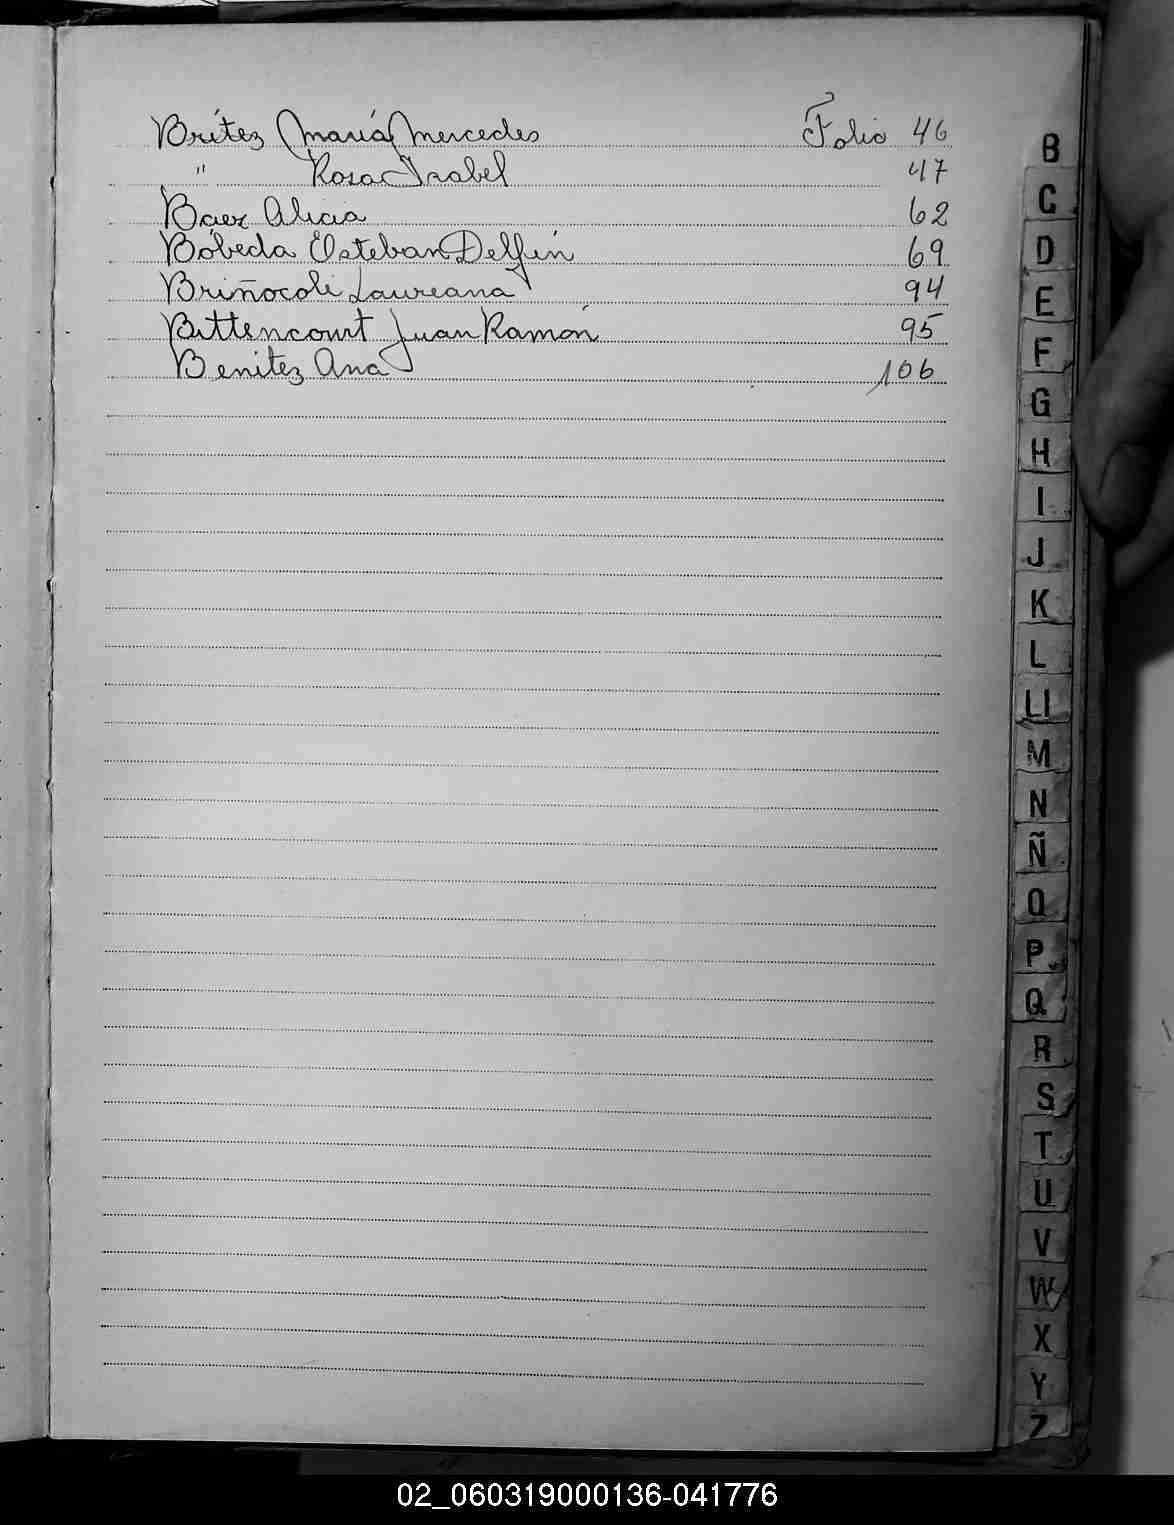 Britez María Mercedes Folio 46
" Rosa Isabel 47
Báez Alicia 62
Bóbeda Esteban Delfín 69
Briñocoli Laureana 94
Bittencourt Juan Ramón 95
Benitez Ana 106
B
C
D
E
F
G
H
I
J
K
L
Ll
M
N
Ñ
O
P
Q
R
S
T
U
V
W
X
Y
Z
02_060319000136-041776